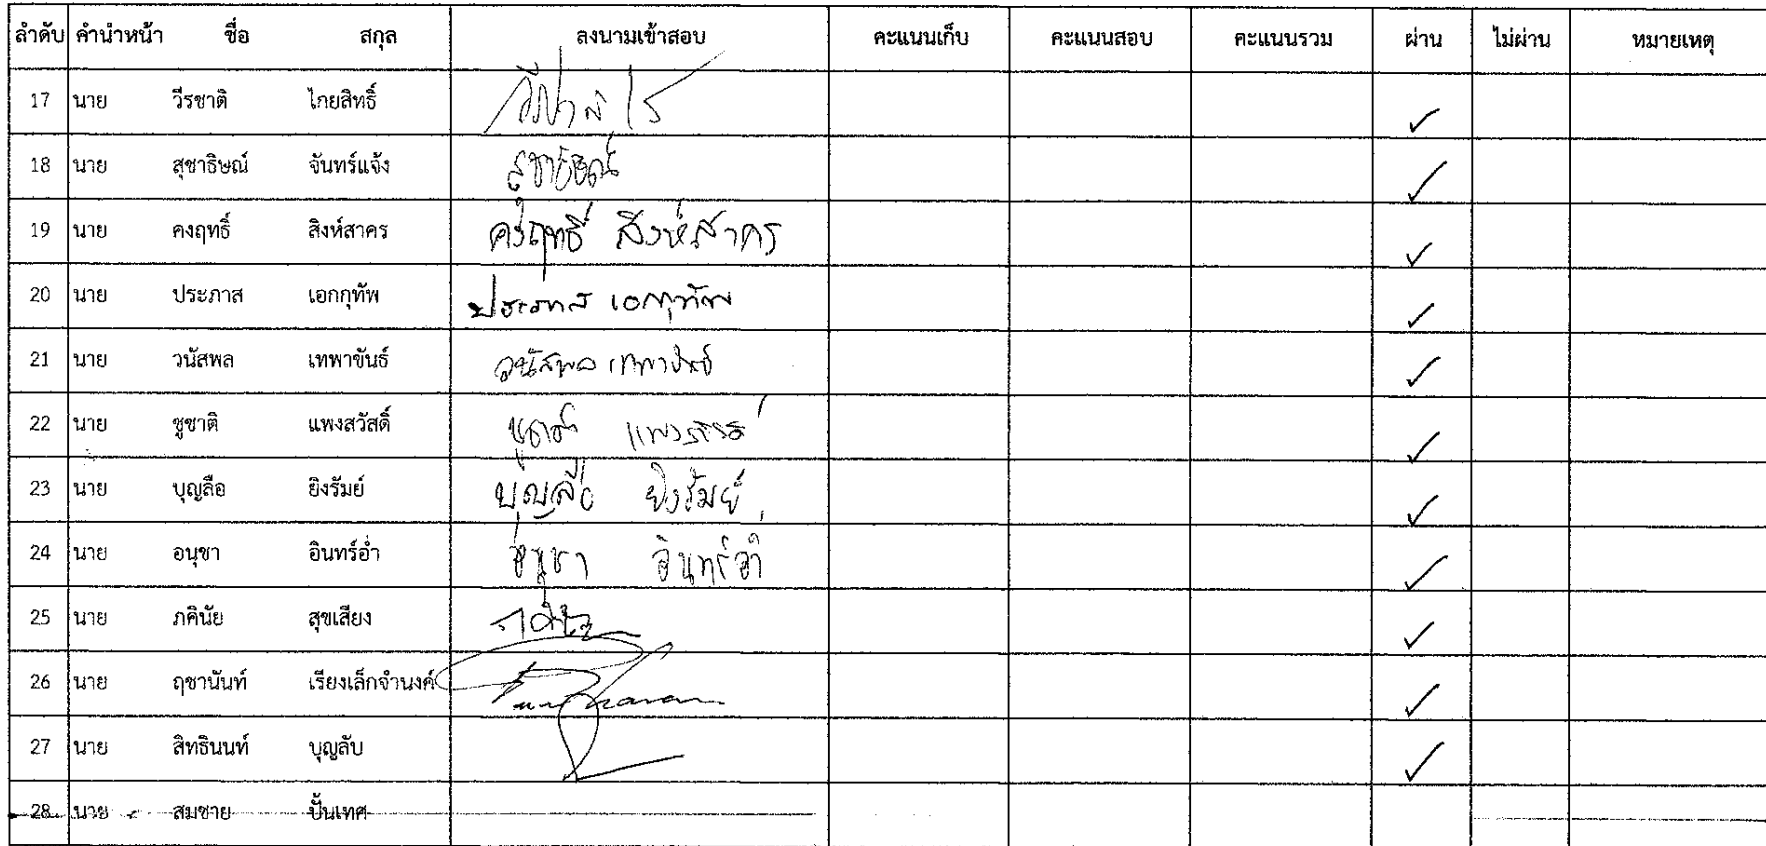 ลำดับ คำนำหน้า ชื่อ สกุล ลงนามเข้าสอบ คะแนนเก็บ คะแนนสอบ คะแนนรวม ผ่าน ไม่ผ่าน หมายเหตุ
17 นาย วีรชาติ ไกยสิทธิ์ ✓
18 นาย สุชาธิษณ์ จันทร์แจ้ง สุชาธิษณ์ ✓
19 นาย คงฤทธิ์ สิงห์สาคร คงฤทธิ์ สิงห์สาคร ✓
20 นาย ประภาส เอกกุทัพ ประภาส เอกกุทัพ ✓
21 นาย วนัสพล เทพาขันธ์ วนัสพล เทพาขันธ์ ✓
22 นาย ชูชาติ แพงสวัสดิ์ ชูชาติ แพงสวัสดิ์ ✓
23 นาย บุญลือ ยิงรัมย์ บุญลือ ยิงรัมย์ ✓
24 นาย อนุชา อินทร์อ่ำ อนุชา อินทร์อ่ำ ✓
25 นาย ภคินัย สุขเสียง ภคินัย ✓
26 นาย ฤชานันท์ เรียงเล็กจำนงค์ ✓
27 นาย สิทธินนท์ บุญลับ ✓
28 นาย สมชาย ปั้นเทศ